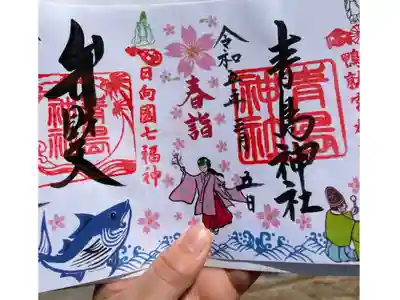 青島神社
青島
神社
令和五年
五日
春詣
日向國七福神
弁財天
青島
神社